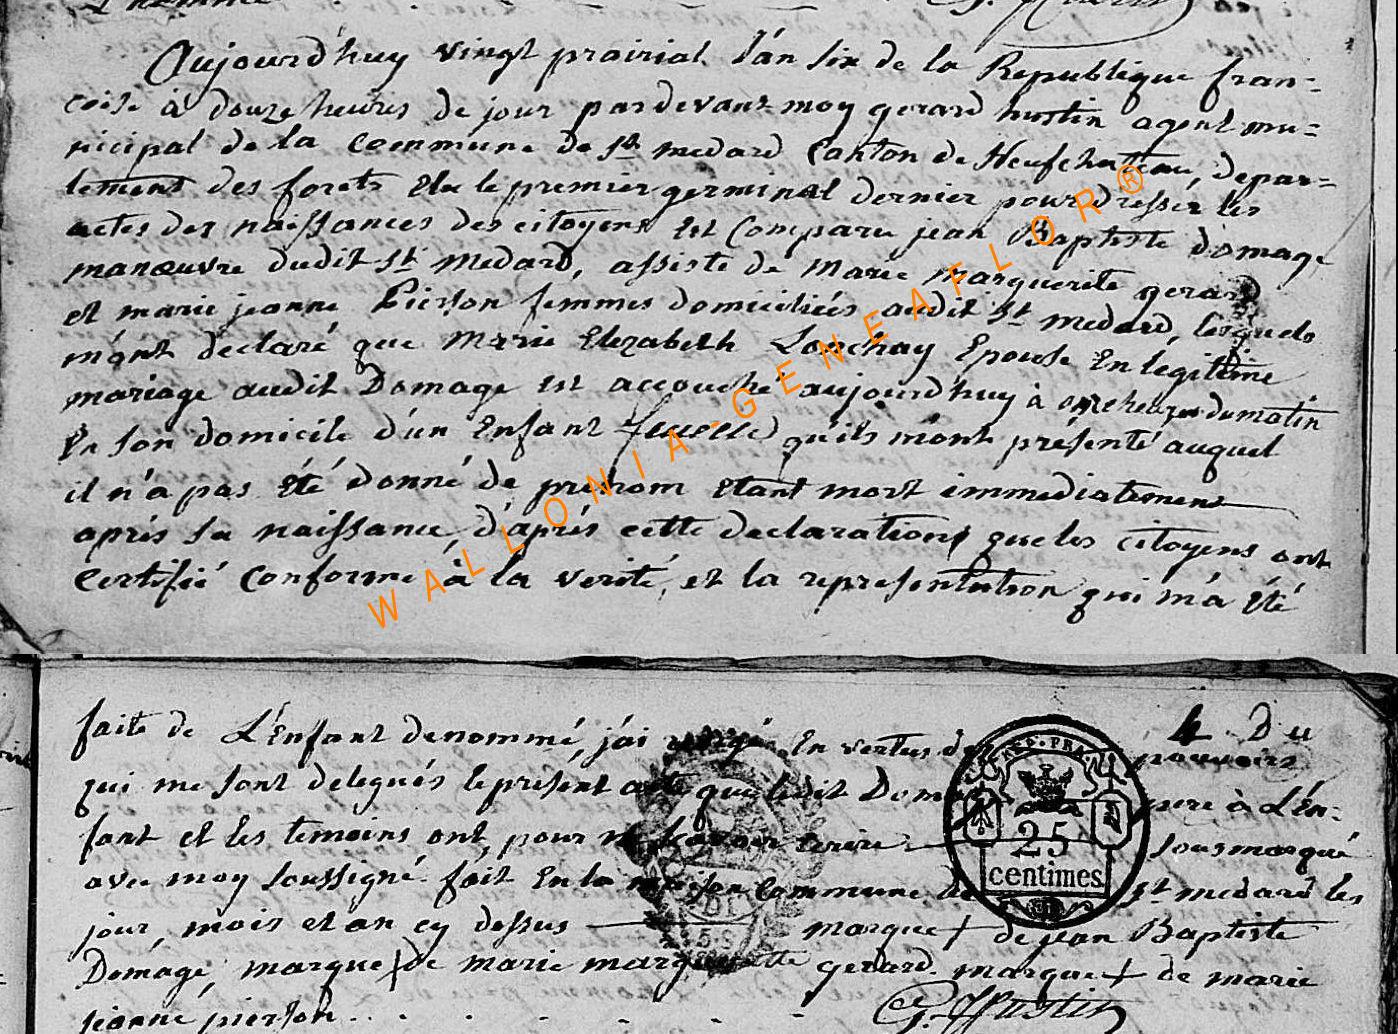 Aujourd'huy vingt prairial l'an six de la Republique fran-
coise à douze heures de jour pardevant moy gerard hustin agent mu-
nicipal de la commune de St medard Canton de Neufchatteau, depar-
tement des forets Elu le premier germinal dernier pour dresser les
actes des naissances des citoyens Est Comparu jean Baptiste domage
manœuvre dudit St Medard, assisté de Marie marguerite gerard
et marie jeanne Pierson femmes domiciliées audit St medard, lesquels
m'ont declaré que Marie Elizabeth Lonchay Epouse En legitime
mariage audit Domage Est accouché aujourd'huy à onze heures du matin
En son domicile d'un Enfant femelle qu'ils m'ont présenté auquel
il n'a pas été donné de prenom étant mort immediatement
après sa naissance, d'après cette declaration que les citoyens ont
Certifié Conforme à la verité, et la representation qui m'a été
faite de L'Enfant denommé, j'ai redigé En vertus des pouvoirs
4 Du
qui me sont delegués le présent acte que ledit Domage pere à L'En-
fant et les temoins ont, pour ne savoir ecrire sousmarqué
avec moy soussigné fait En la maison Commune de St medard les
jour, mois et an cy dessus marque + de jean Baptiste
Domage, marque + de marie marguerite gerard marque + de marie
jeanne pierson
G. Hustin
25
centimes
WALLONIA-GENEAFLOR®